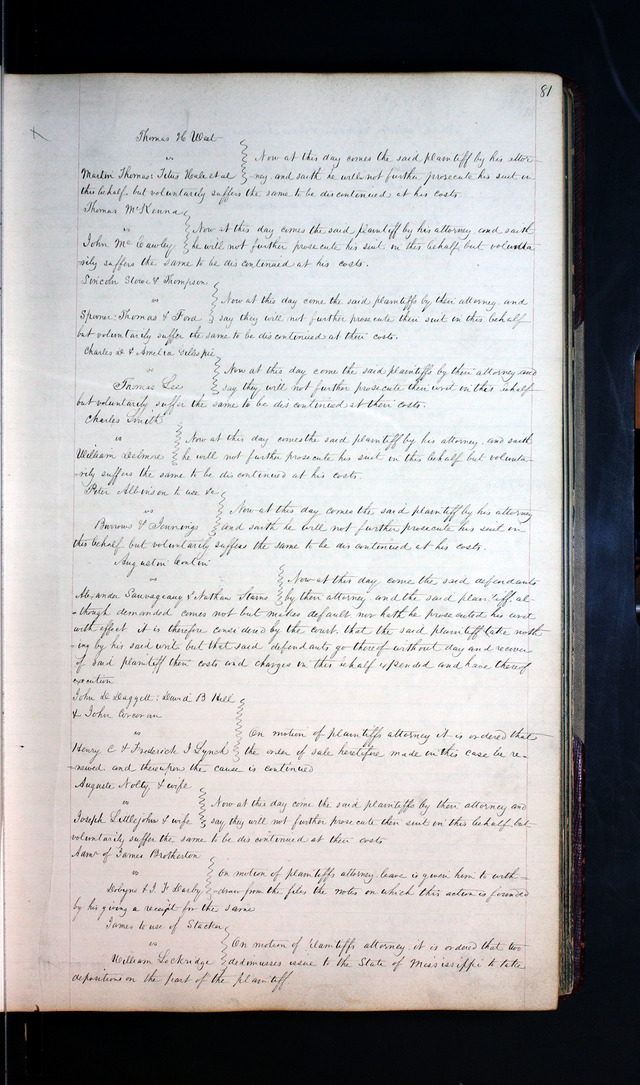 81
Thomas H West
vs Now at this day comes the said plaintiff by his attor-
Martin Thomas: Titus Hale et al ney. and saith he will not further prosecute his suit in
this behalf. but voluntarily suffers the same to be discontinued at his costs
Thomas McKenna
vs Now at this day comes the said plaintiff by his attorney and saith
John McCawley he will not further prosecute his suit in this behalf but volunta
-rily suffers the same to be discontinued at his costs.
Lincoln Stowe & Thompson.
vs Now at this day come the said plaintiffs by their attorney. and
Thomas & Ford say they will not further prosecute their suit in this behalf
but voluntarily suffer the same to be discontinued at their costs.
Charles D & Amelia Gillespie
vs Now at this day come the said plaintiffs by their attorney and
Thomas Lee say they will not further prosecute their writ in this behalf
but voluntarily suffer the same to be discontinued at their costs.
Charles Smith
vs Now at this day comes the said plaintiff by his attorney. and saith
William he will not further prosecute his suit in this behalf but volunta-
-rily suffers the same to be discontinued at his costs.
Peter Albinson to use &c
vs Now at this day comes the said plaintiff by his attorney
Burrows & Jennings and saith he will not further prosecute his suit in
this behalf but voluntarily suffers the same to be discontinued at his costs.
Augustin
vs Now at this day come the said defendants
Alexander Sauvageaux & Nathan Starns by their attorney and the said plaintiff. al-
-though demanded comes not but makes default nor hath he prosecuted his writ
with effect it is therefore considered by the court. that the said plaintiff take noth
-ing by his said writ but that said defendants go thereof without day and recover
of said plaintiff their costs and charges in this behalf expended and have thereof
execution
John D Daggett: David B Hill
& John Corcoran
vs On motion of plaintiffs attorney it is ordered that
Henry C & Frederick J Lynch the order of sale heretofore made in this case be re-
-newed and thereupon the cause is continued
Auguste Nolty & wife
vs Now at this day come the said plaintiffs by their attorney and
Joseph Littlejohn & wife say they will not further prosecute their suit in this behalf. but
voluntarily suffer the same to be discontinued at their costs
Admr of James Brotherton
vs On motion of plaintiffs attorney leave is given him to with-
Dobyns & J F Darby -draw from the files the notes on which this action is founded
by his giving a receipt for the same
James to use of Stacker
vs On motion of plaintiffs attorney it is ordered that two
William Lockridge dedimusses issue to the State of Mississippi to take
depositions on the part of the plaintiff